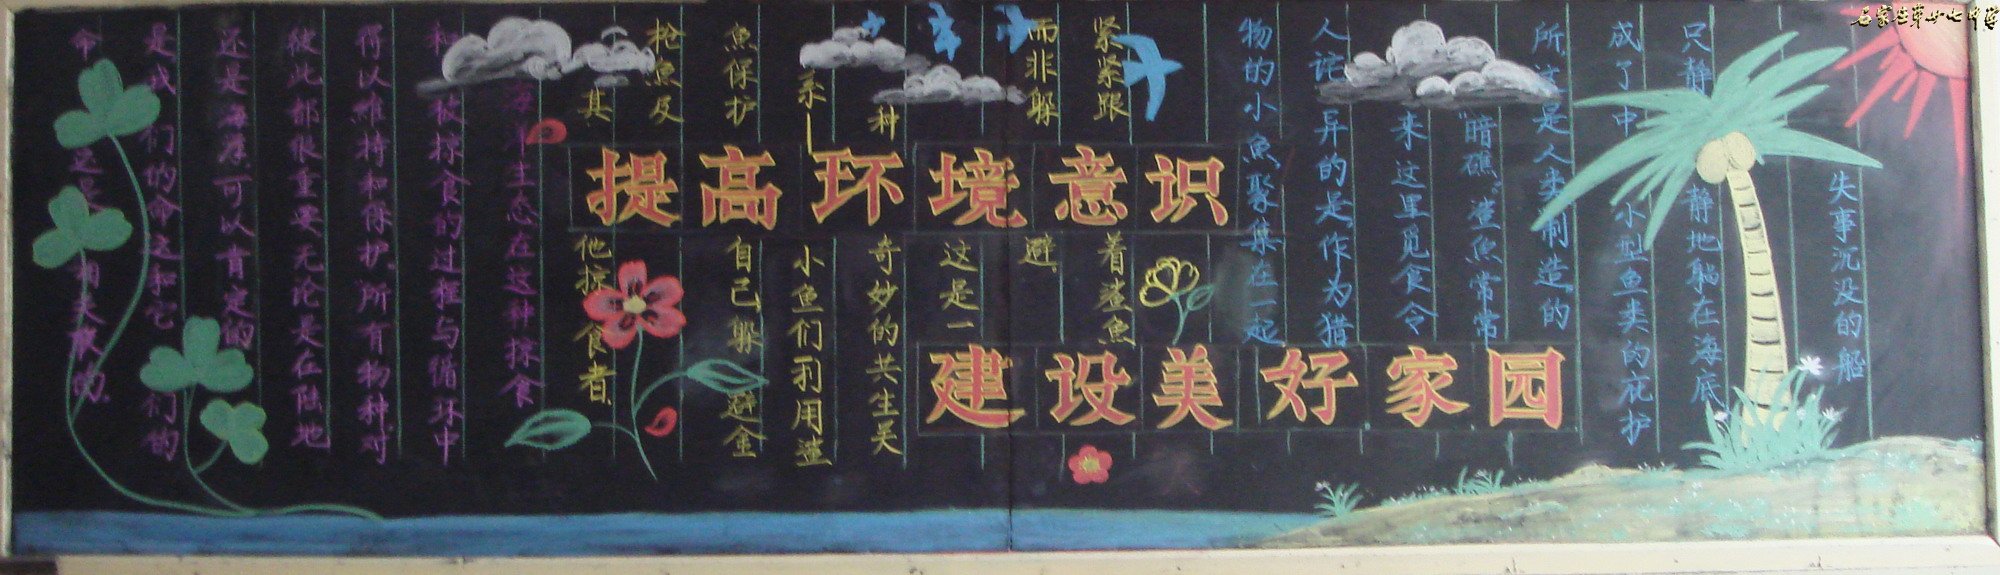 石家庄第廿七中学
提高环境意识
建设美好家园
失事沉没的船
只静静地躺在海底
成了中小型鱼类的庇护
所,这是人类制造的
"暗礁"鲨魚常常
来这里觅食令
人诧异的是,作为猎
物的小魚聚集在一起
紧紧跟着鲨魚
而非躲避.
这是一
种奇妙的共生关
系—小鱼们利用鲨
魚保护自己,躲避金
枪魚及
其他掠食者.
海洋生态在这种掠食
和被掠食的过程与循环中
得以維持和保护,所有物种对
彼此都很重要无论是在陆地
还是海洋可以肯定的
是我们的命运和它们的
命运是相关联的.